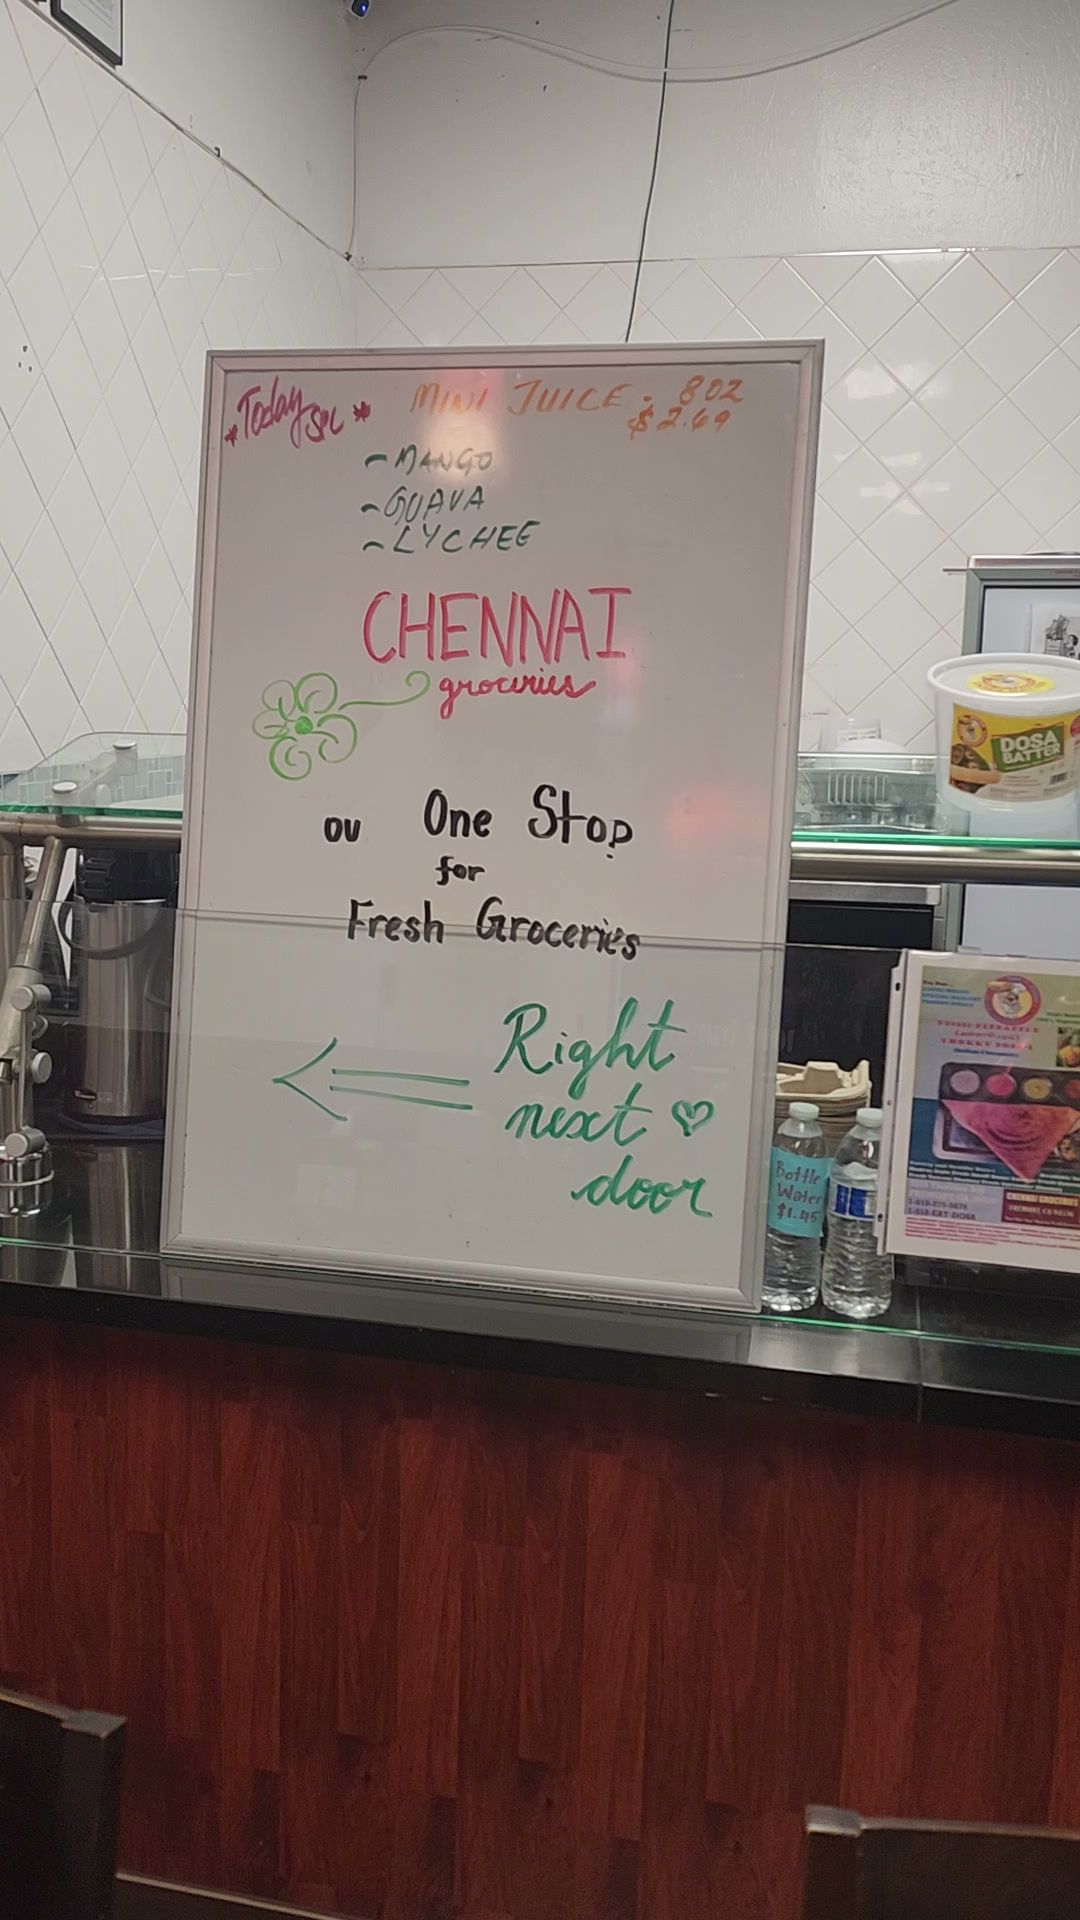 *Today Spl*
MINI JUICE - 8OZ
$2.69
- MANGO
- GUAVA
- LYCHEE
CHENNAI
groceries
ou One Stop
for
Fresh Groceries
Right
next
door
DOSA
BATTER
Bottle
Water
$1.45
CHENNAI GROCERIES